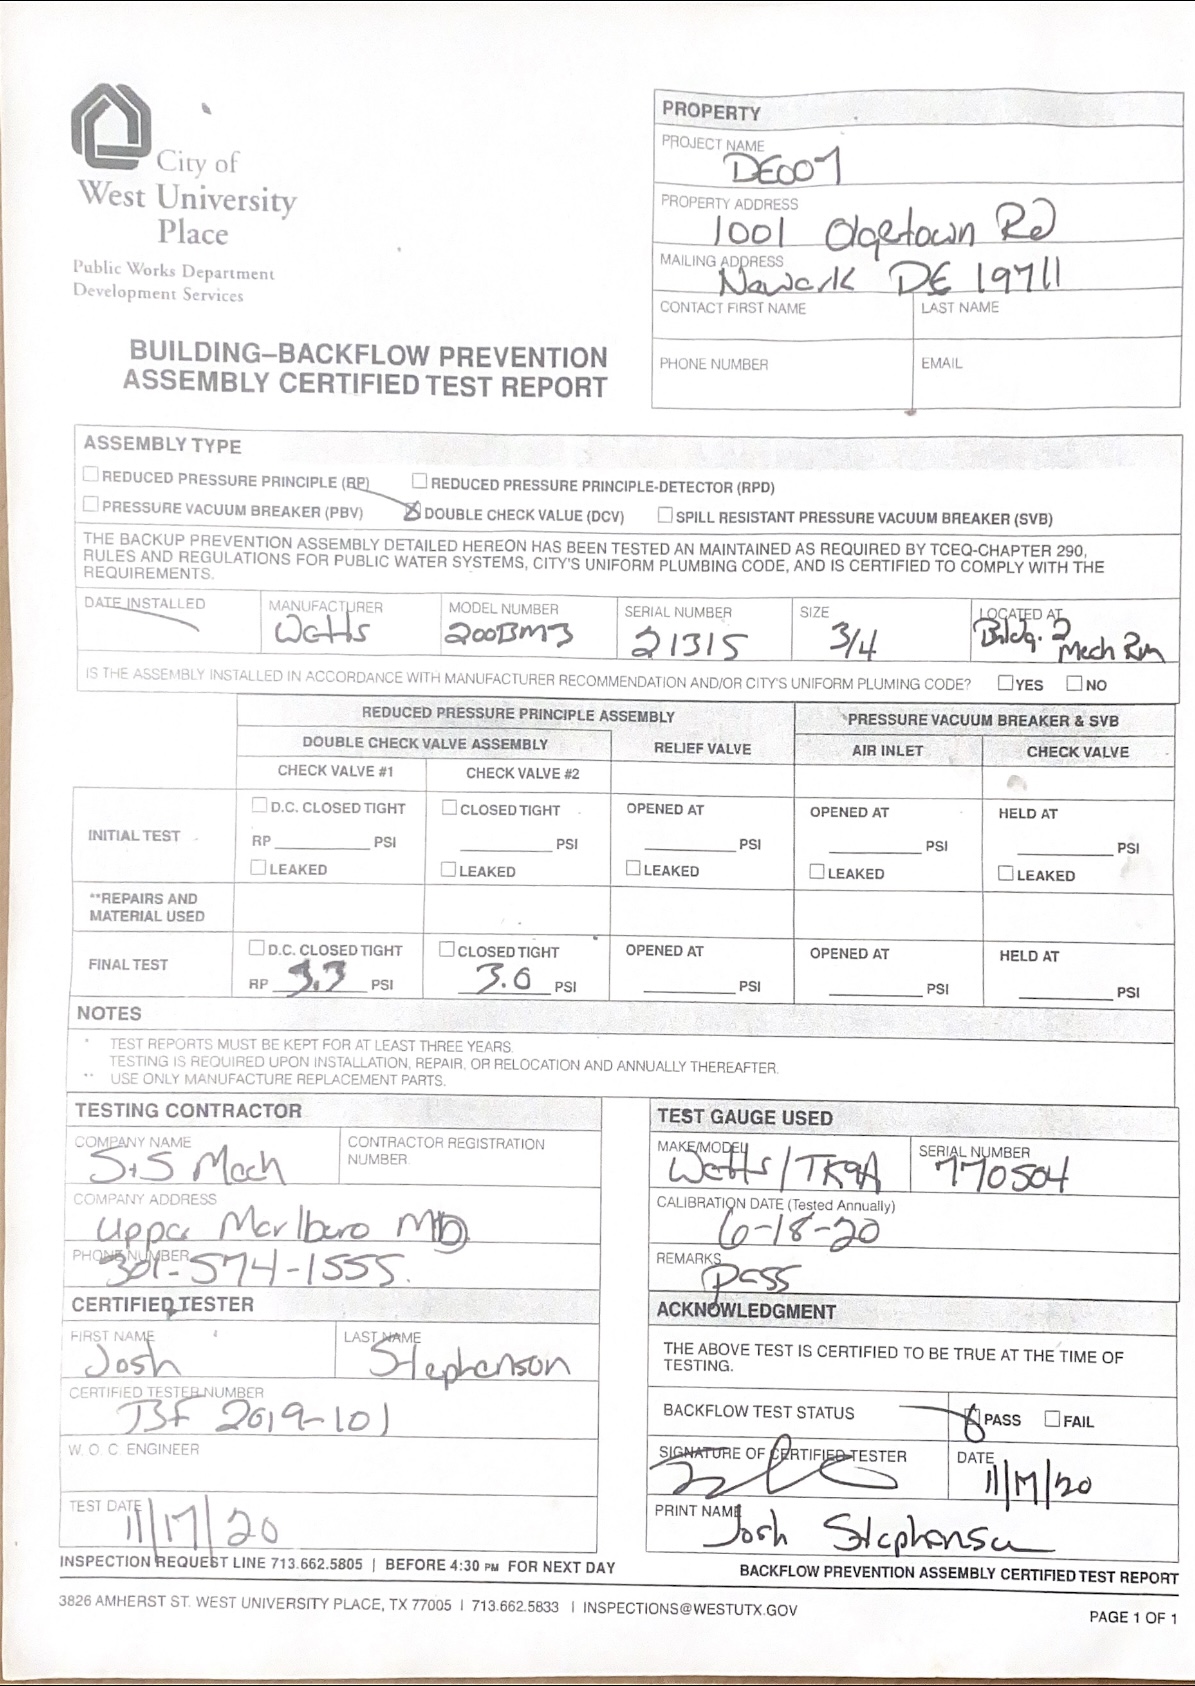 City of
West University
Place
Public Works Department
Development Services
BUILDING–BACKFLOW PREVENTION
ASSEMBLY CERTIFIED TEST REPORT
PROPERTY
PROJECT NAME
DE007
PROPERTY ADDRESS
1001 Olgetown Rd
MAILING ADDRESS
Newark DE 19711
CONTACT FIRST NAME LAST NAME
PHONE NUMBER EMAIL
ASSEMBLY TYPE
REDUCED PRESSURE PRINCIPLE (RP) REDUCED PRESSURE PRINCIPLE-DETECTOR (RPD)
PRESSURE VACUUM BREAKER (PBV) DOUBLE CHECK VALUE (DCV) SPILL RESISTANT PRESSURE VACUUM BREAKER (SVB)
THE BACKUP PREVENTION ASSEMBLY DETAILED HEREON HAS BEEN TESTED AN MAINTAINED AS REQUIRED BY TCEQ-CHAPTER 290,
RULES AND REGULATIONS FOR PUBLIC WATER SYSTEMS, CITY'S UNIFORM PLUMBING CODE, AND IS CERTIFIED TO COMPLY WITH THE
REQUIREMENTS.
DATE INSTALLED MANUFACTURER MODEL NUMBER SERIAL NUMBER SIZE LOCATED AT
Watts 200BM3 21315 3/4 Bldg. 2
Mech Rm
IS THE ASSEMBLY INSTALLED IN ACCORDANCE WITH MANUFACTURER RECOMMENDATION AND/OR CITY'S UNIFORM PLUMING CODE? YES NO
REDUCED PRESSURE PRINCIPLE ASSEMBLY PRESSURE VACUUM BREAKER & SVB
DOUBLE CHECK VALVE ASSEMBLY RELIEF VALVE AIR INLET CHECK VALVE
CHECK VALVE #1 CHECK VALVE #2
INITIAL TEST
D.C. CLOSED TIGHT CLOSED TIGHT OPENED AT OPENED AT HELD AT
RP PSI PSI PSI PSI PSI
LEAKED LEAKED LEAKED LEAKED LEAKED
**REPAIRS AND
MATERIAL USED
FINAL TEST
D.C. CLOSED TIGHT CLOSED TIGHT OPENED AT OPENED AT HELD AT
RP 3.3 PSI 3.0 PSI PSI PSI PSI
NOTES
* TEST REPORTS MUST BE KEPT FOR AT LEAST THREE YEARS.
TESTING IS REQUIRED UPON INSTALLATION, REPAIR, OR RELOCATION AND ANNUALLY THEREAFTER.
** USE ONLY MANUFACTURE REPLACEMENT PARTS.
TESTING CONTRACTOR
COMPANY NAME CONTRACTOR REGISTRATION
NUMBER
S+S Mech
COMPANY ADDRESS
Upper Marlboro MD
PHONE NUMBER
301-574-1555
CERTIFIED TESTER
FIRST NAME LAST NAME
Josh Stephenson
CERTIFIED TESTER NUMBER
BF 2019-101
W. O. C. ENGINEER
TEST DATE
11/17/20
TEST GAUGE USED
MAKE/MODEL SERIAL NUMBER
Watts/TK9A 770504
CALIBRATION DATE (Tested Annually)
6-18-20
REMARKS
Pass
ACKNOWLEDGMENT
THE ABOVE TEST IS CERTIFIED TO BE TRUE AT THE TIME OF
TESTING.
BACKFLOW TEST STATUS PASS FAIL
SIGNATURE OF CERTIFIED TESTER DATE
11/17/20
PRINT NAME
Josh Stephenson
INSPECTION REQUEST LINE 713.662.5805 | BEFORE 4:30 PM FOR NEXT DAY
BACKFLOW PREVENTION ASSEMBLY CERTIFIED TEST REPORT
3826 AMHERST ST. WEST UNIVERSITY PLACE, TX 77005 | 713.662.5833 | INSPECTIONS@WESTUTX.GOV
PAGE 1 OF 1